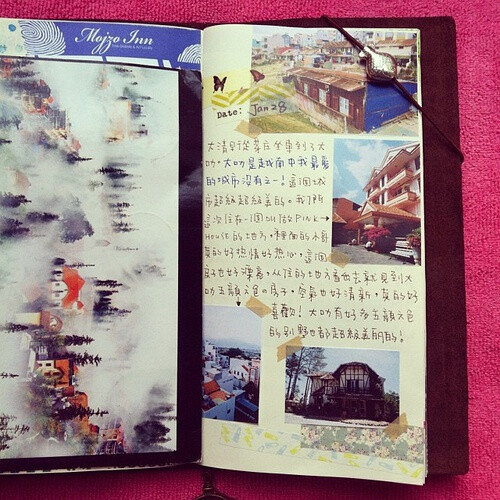 Mojzo Inn
Date: Jan 28
大清早從芽庄坐車到了大
叻，大叻是越南中我最愛
的城市沒有之一！這個城
市超級超級美的。我們
這次住在一個叫做 Pink →
House的地方，裡面的小哥
真的好熱情好熱心，這個
房也好漂亮，從住的地方看出去就見到大
叻五顏六色的房子，空氣也好清新，真的好
喜歡！大叻有好多五顏六色
的別墅也都超級美麗的！